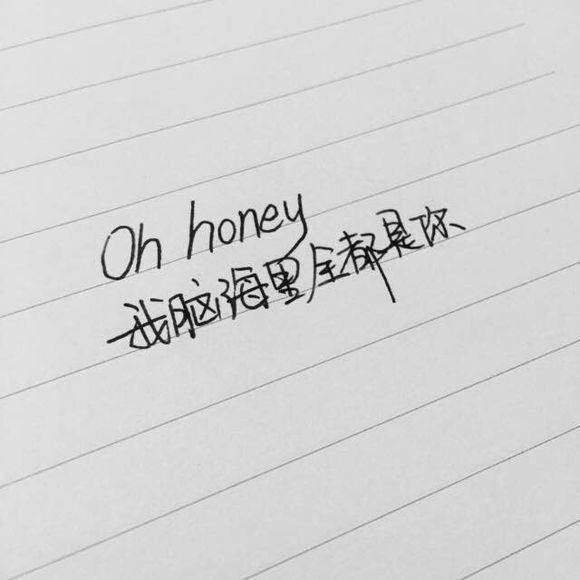 Oh honey
我脑海里全都是你